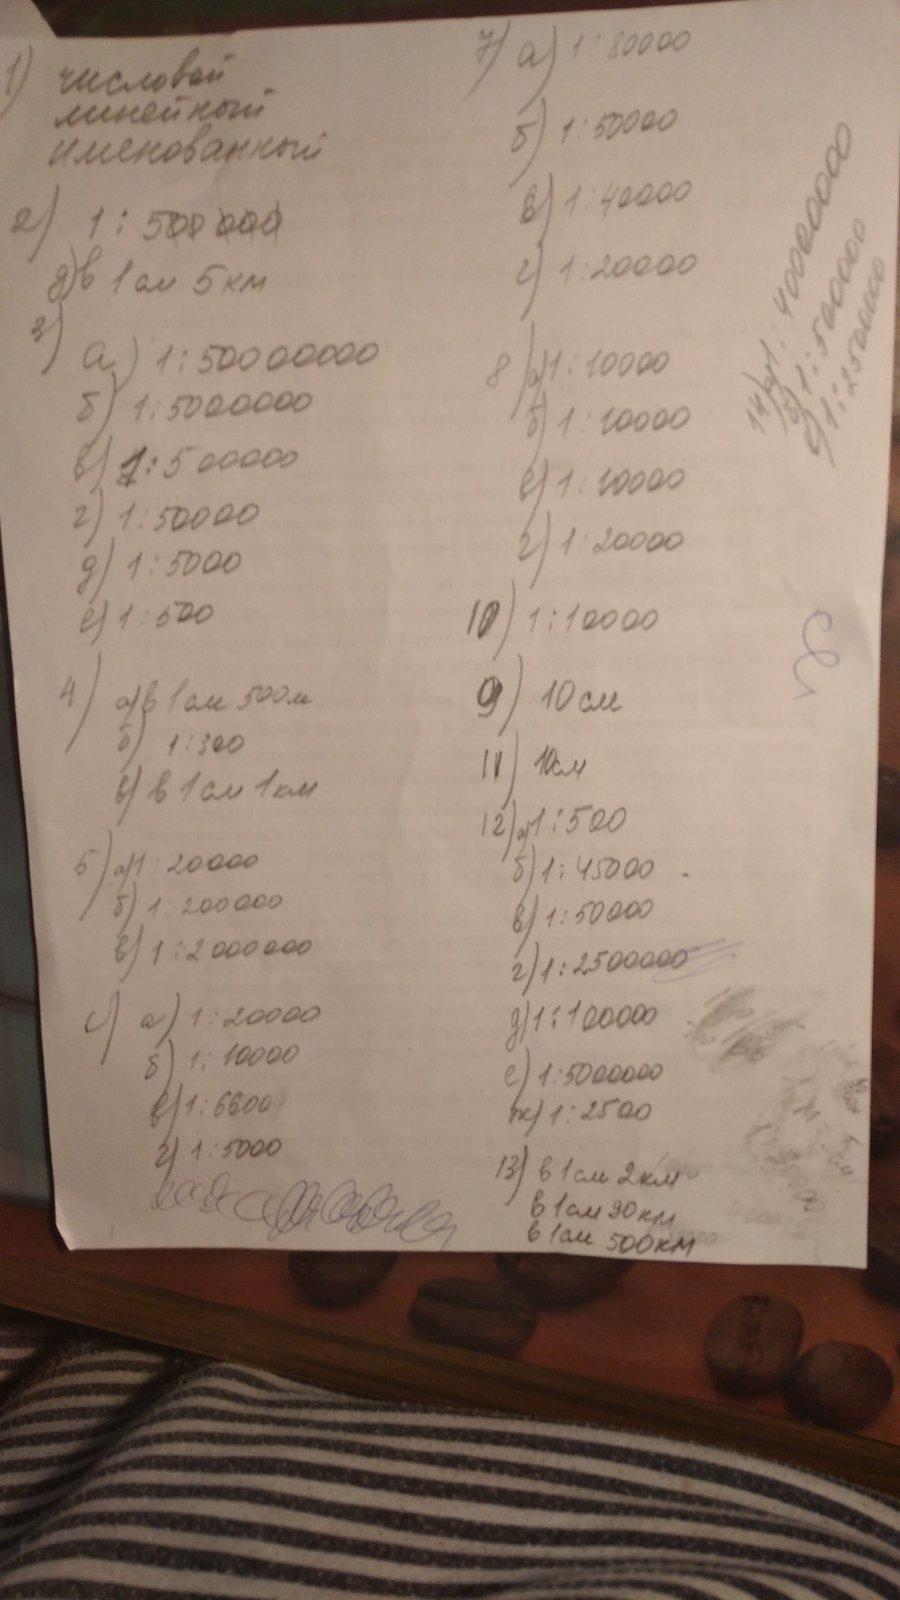 1) числовой
линейный
именованный
2) 1 : 500 000
д) в 1 см 5 км
3)
а) 1 : 50000000
б) 1 : 5000000
в) 1 : 500000
г) 1 : 50000
д) 1 : 5000
е) 1 : 500
4) а) в 1 см 500 м
б) 1 : 300
в) в 1 см 1 км
5) а) 1 : 20000
б) 1 : 200000
в) 1 : 2000000
а) 1 : 20000
б) 1 : 10000
в) 1 : 6600
г) 1 : 5000
7) а) 1 : 80000
б) 1 : 50000
в) 1 : 40000
г) 1 : 20000
8 а) 1 : 10000
б) 1 : 10000
в) 1 : 10000
г) 1 : 20000
10) 1 : 10000
9) 10 см
11) 10 см
12) а) 1 : 500
б) 1 : 45000
в) 1 : 50000
г) 1 : 2500000
д) 1 : 100000
е) 1 : 5000000
ж) 1 : 2500
13) в 1 см 2 км
в 1 см 90 км
в 1 см 500 км
14) а) 1 : 4000000
б) 1 : 500000
1 : 2500000